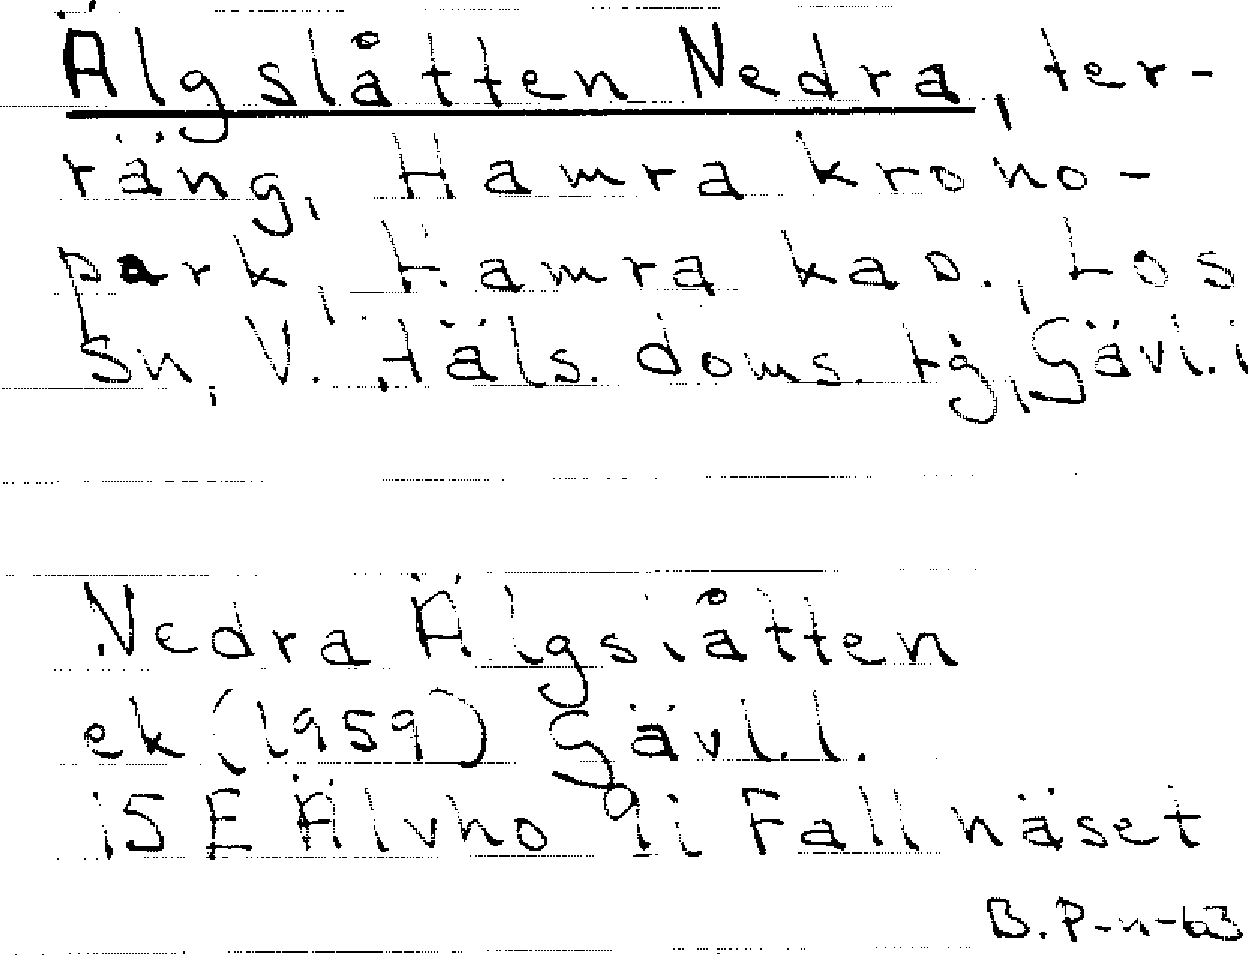 Älgslåtten Nedra, ter-
räng, Hamra krono-
park, Hamra kap., Los
sn, V. Häls. doms. tg, Gävl. l
Nedra Älgslåtten
ek (1959) Gävl. l.
15 E Älvho 9i Fallnäset
B. P-n-63